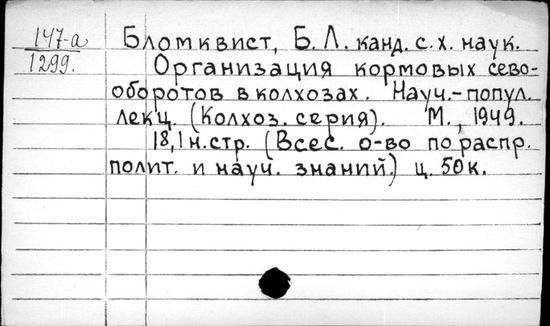 147-а
1299.
Бломквист, Б. Л. канд. с. х. наук.
Организация кормовых сево-
оборотов в колхозах. Науч.-попул.
лекц. (Колхоз. серия). М., 1949.
18,1 н. стр. (Всес. о-во по распр.
полит. и науч. знаний.) ц. 50 к.